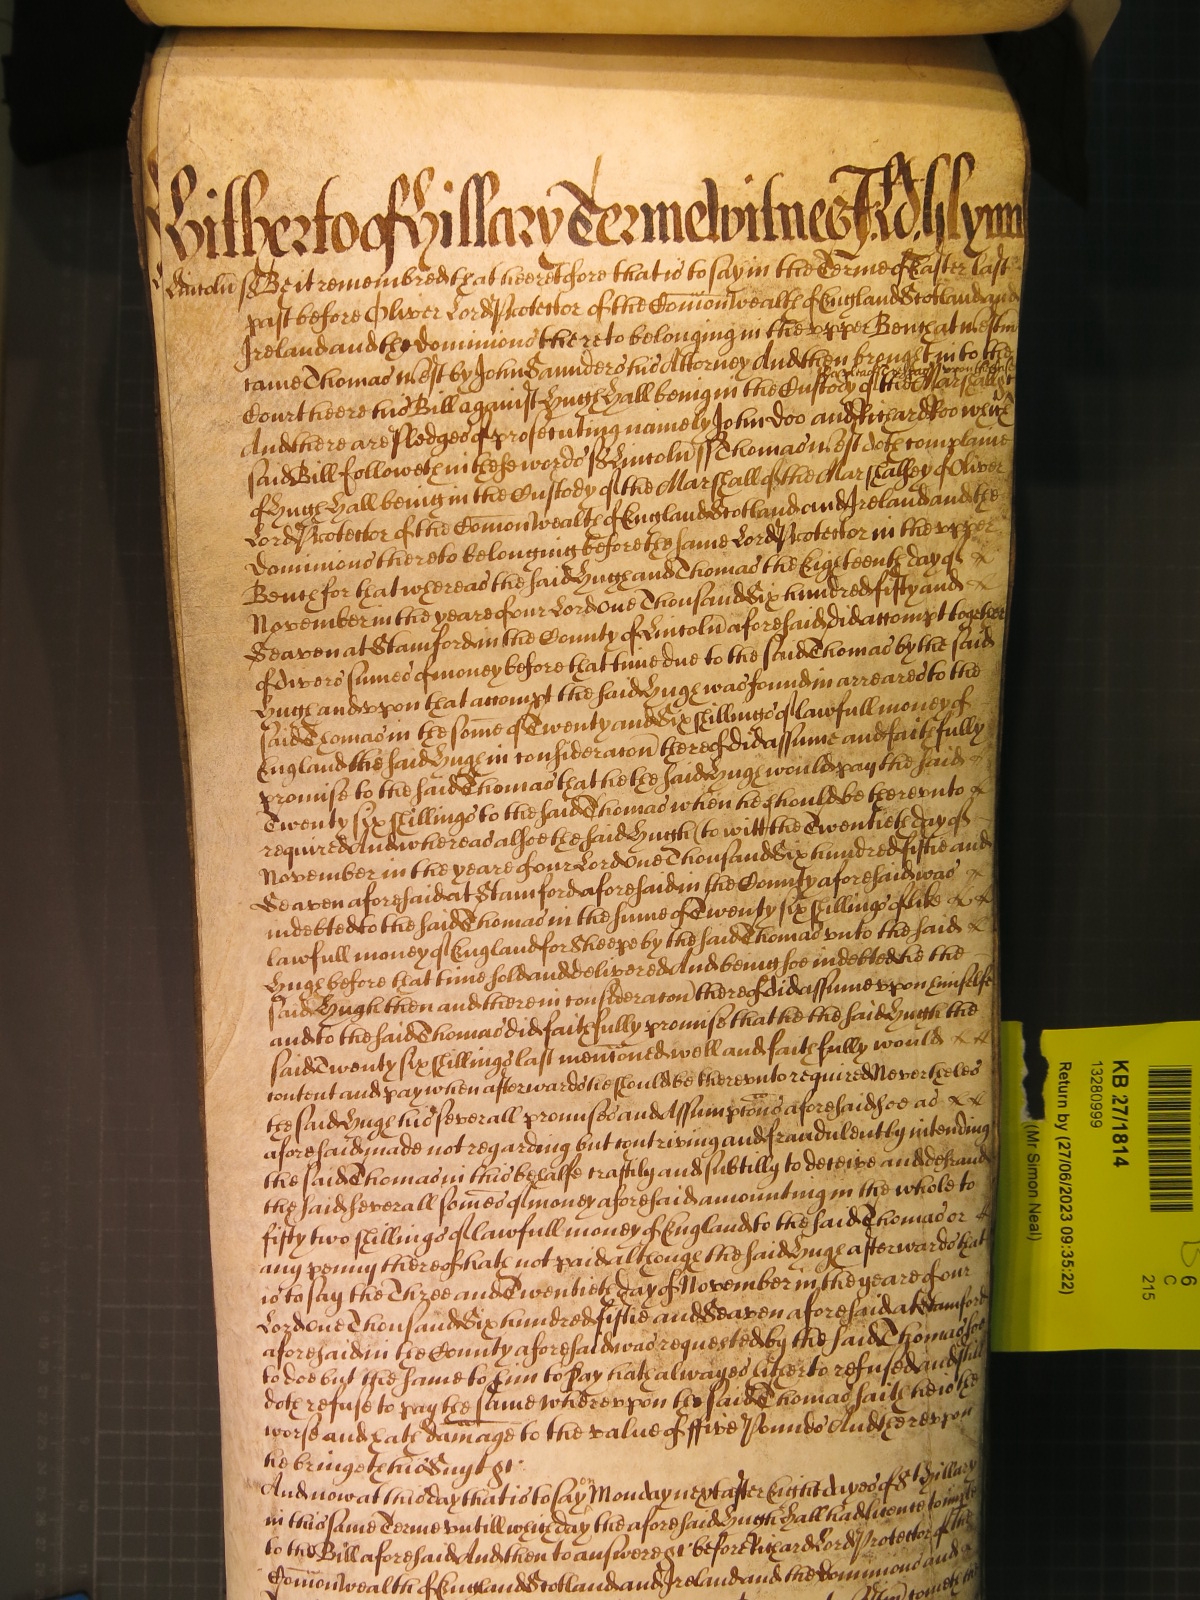 Hitherto of Hillary Terme witnes R d Glynn
Lincoln ss Be it remembred that heeretofore that is to say in the Terme of Easter last
past before Oliver Lord Protector of the Comonwealth of England Scotland and
Ireland and the Dominions thereto belonging in the vpper Bench at westm
came Thomas west by John Saunders his Attorney And then brought in to the
Court heere his Bill against Hugh Hall being in the Custody of the Marshall &c
And there are Pledges of prosecuting namely John Doo and Richard Roo which
said Bill followeth in these words ss Lincoln ss Thomas west doth complaine
of Hugh Hall being in the Custody of the Marshall of the Marshalsey of Oliver
Lord Protector of the Comonwealth of England Scotland and Ireland and the
Dominions thereto belonging before the same Lord Protector in the vpper
Bench for that whereas the said Hugh and Thomas the Eighteenth day of
November in the yeare of our Lord one Thousand Six hundred fifty and
Seaven at Stamford in the County of Lincoln aforesaid did accompt together
of divers sumes of money before that time due to the said Thomas by the said
Hugh and vpon that accompt the said Hugh was found in arreares to the
said Thomas in the some of Twenty and Six shillings of lawfull money of
England the said Hugh in consideracon thereof did assume and faithfully
promise to the said Thomas that he the said Hugh would pay the said
Twenty six shillings to the said Thomas when he should be therevnto
required And whereas alsoe the said Hugh (to witt) the Twentieth day of
November in the yeare of our Lord one Thousand Six hundred fiftie and
Seaven aforesaid at Stamford aforesaid in the County aforesaid was
indebted to the said Thomas in the sume of Twenty six shillings of like
lawfull money of England for Sheepe by the said Thomas vnto the said
Hugh before that time sold and delivered And being soe indebted he the
said Hugh then and there in consideracon thereof did assume vpon himselfe
and to the said Thomas did faithfully promise that he the said Hugh the
said Twenty six shillings last mencioned well and faithfully would
content and pay when afterwards he should be therevnto required Neverthelesse
the said Hugh his severall promises and Assumptions aforesaid soe as
aforesaid made not regarding but contriving and fraudulently intending
the said Thomas in this behalfe craftily and subtilly to deceive and defraud
the said severall somes of money aforesaid amounting in the whole to
fifty two shillings of lawfull money of England to the said Thomas or
any penny thereof hath not paid although the said Hugh afterwards that
is to say the Three and Twentieth day of November in the yeare of our
Lord one Thousand Six hundred fiftie and Seaven aforesaid at Stamford
aforesaid in the County aforesaid was requested by the said Thomas soe
to doe but the same to him to pay hath alwayes hitherto refused and still
doth refuse to pay the same wherevpon the said Thomas saith he is the
worse and hath damage to the value of ffive Pounds And therevpon
he bringeth his Suyt &c
And now at this day that is to say on Monday next after Eight dayes of St Hillary
in this same Terme vntill which day the aforesaid Hugh Hall had licence to imple
to the Bill aforesaid And then to answere &c before Richard Lord Protector of the
Comonwealth of England Scotland and Ireland and the dominions and
KB 27/1814
13280999
Return by (27/06/2023 09:35:22)
(Mr Simon Neal)
6
C
215